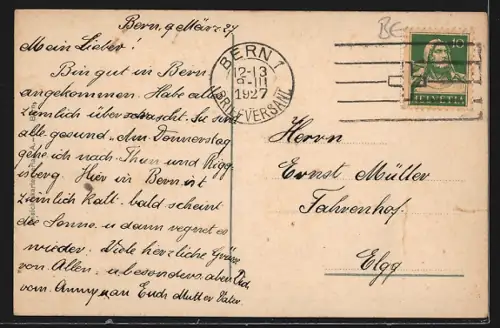 Bern, 9 März 27
Mein Lieber!
Bin gut in Bern
angekommen. Habe alle
ziemlich überrascht. Sie sind
alle gesund. Am Donnerstag
gehe ich nach Thun und Rigg-
isberg. Hier in Bern ist
ziemlich kalt. bald scheint
die Sonne u dann regnet es
wieder. Viele herzliche Grüsse
von Allen. u besonders aber
vom Anny an Euch Mutter Vater.
BERN 1
12-13
9.III
1927
BRIEFVERSAND
BE
10
HELVETIA
Herrn
Ernst Müller
Fahrenhof.
Elgg